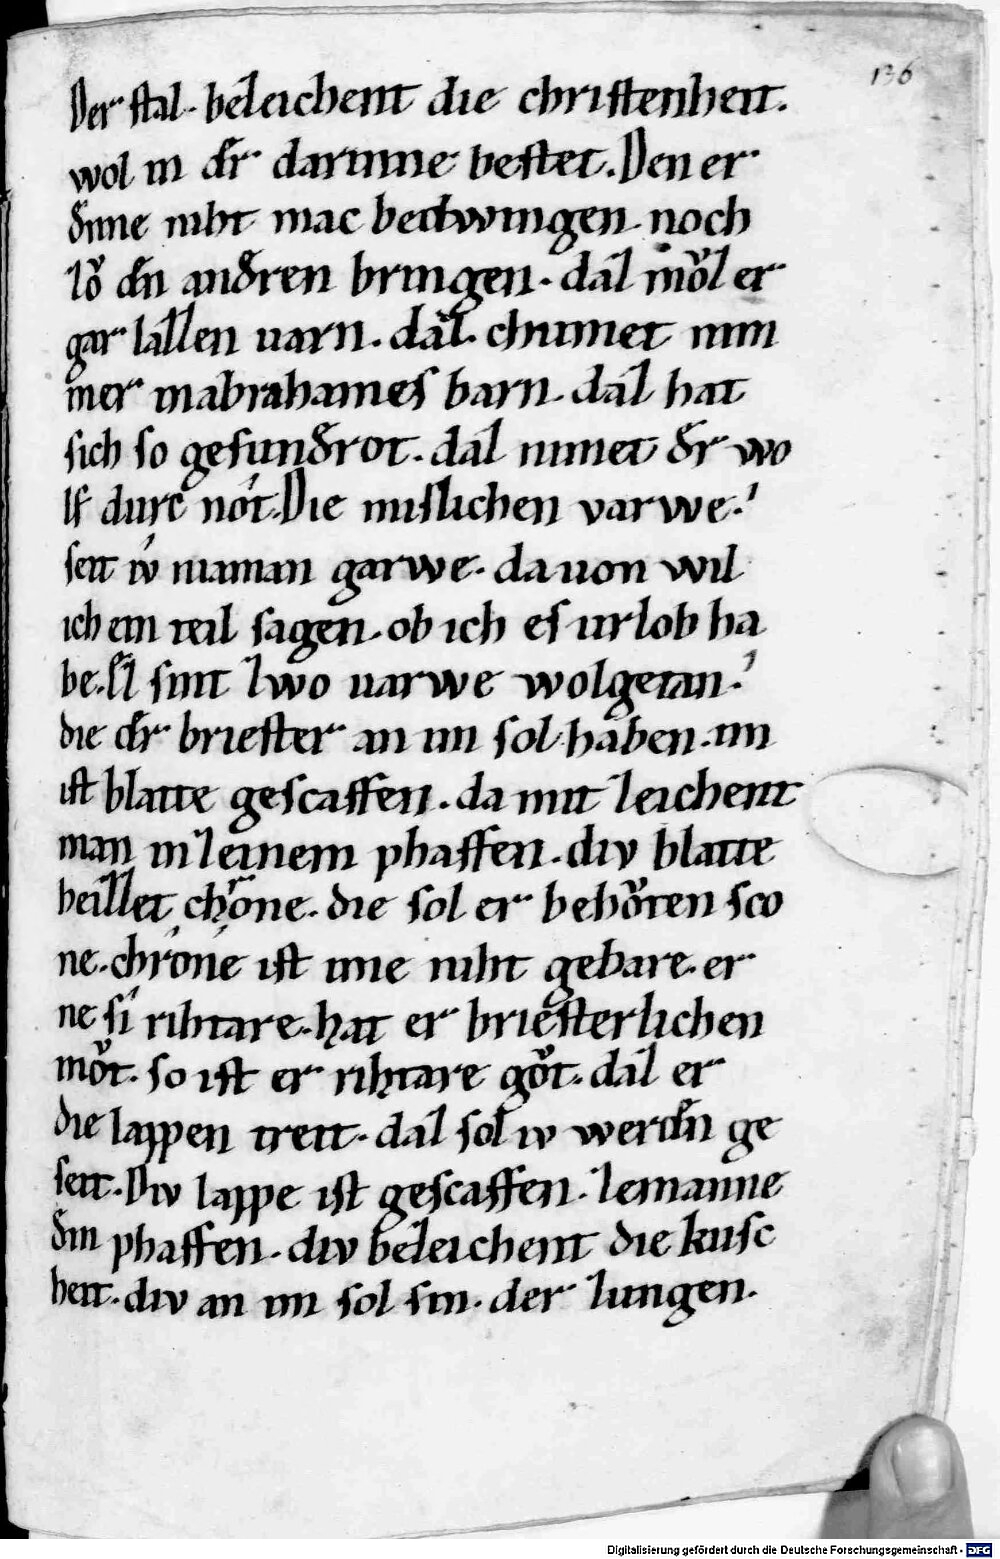 136
Der stal. bezeichent die christenheit.
wol in dˀr darinne bestet. Den er
dˀinne niht mac bedwingen. noch
zǒ dˀn andˀren bringen. daz mǒz er
gar lazzen uarn. daz. chumet nim
mer in abrahames barn. daz hat
sich so gesundˀrot. daz nimet dˀr wo
lf durc nót. Die mislichen varwe.
seit iv niaman garwe. da uon wil
ich ein teil sagen. ob ich es urlob ha
be. Ez sint zwo uarwe wolgetan.
die dˀr briester an im sol haben. im
ist blatte gescaffen. da mit zeichent
man in zeinem phaffen. div blatte
heizzet chrône. die sol er behǒten sco
ne. chrône ist ime niht gebare. er
ne sî rihtare. hat er briesterlichen
mǒt. so ist er rihtare gǒt. daz er
die lappen treit. daz sol iv werdˀn ge
seit. Div lappe ist gescaffen. zemanne
dˀm phaffen. div bezeichent die kusc
heit. div an im sol sin. der zungen.
Digitalisierung gefördert durch die Deutsche Forschungsgemeinschaft - DFG